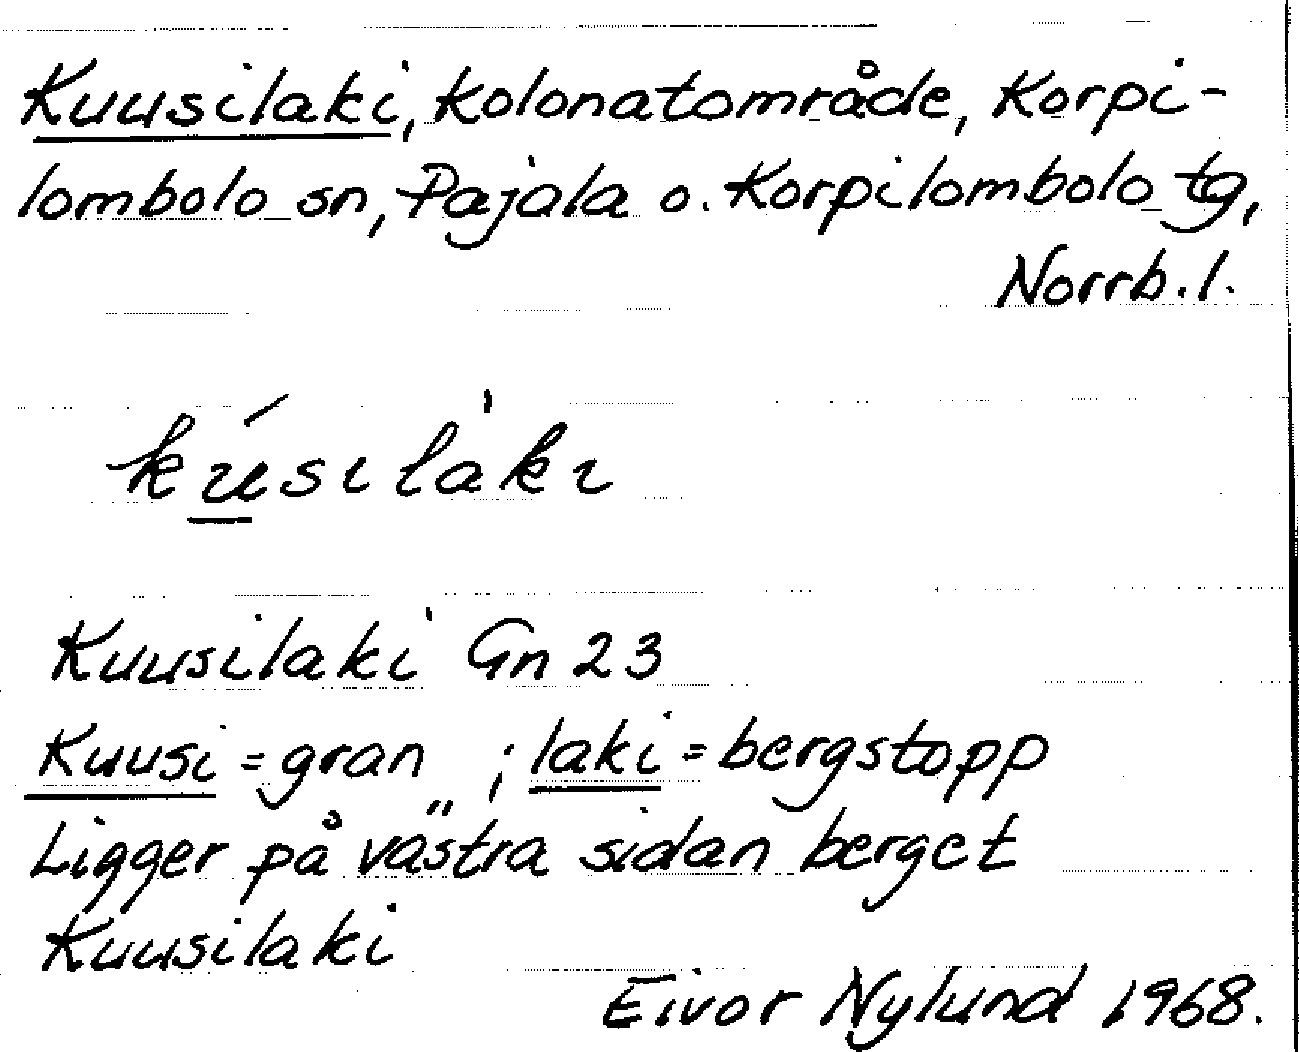 Kuusilaki, kolonatområde, Korpi-
lombolo sn, Pajala o. Korpilombolo tg,
Norrb.l.
kúsilàki
Kuusilaki Gn 23
Kuusi = gran ; laki = bergstopp
Ligger på västra sidan berget
Kuusilaki
Eivor Nylund 1968.